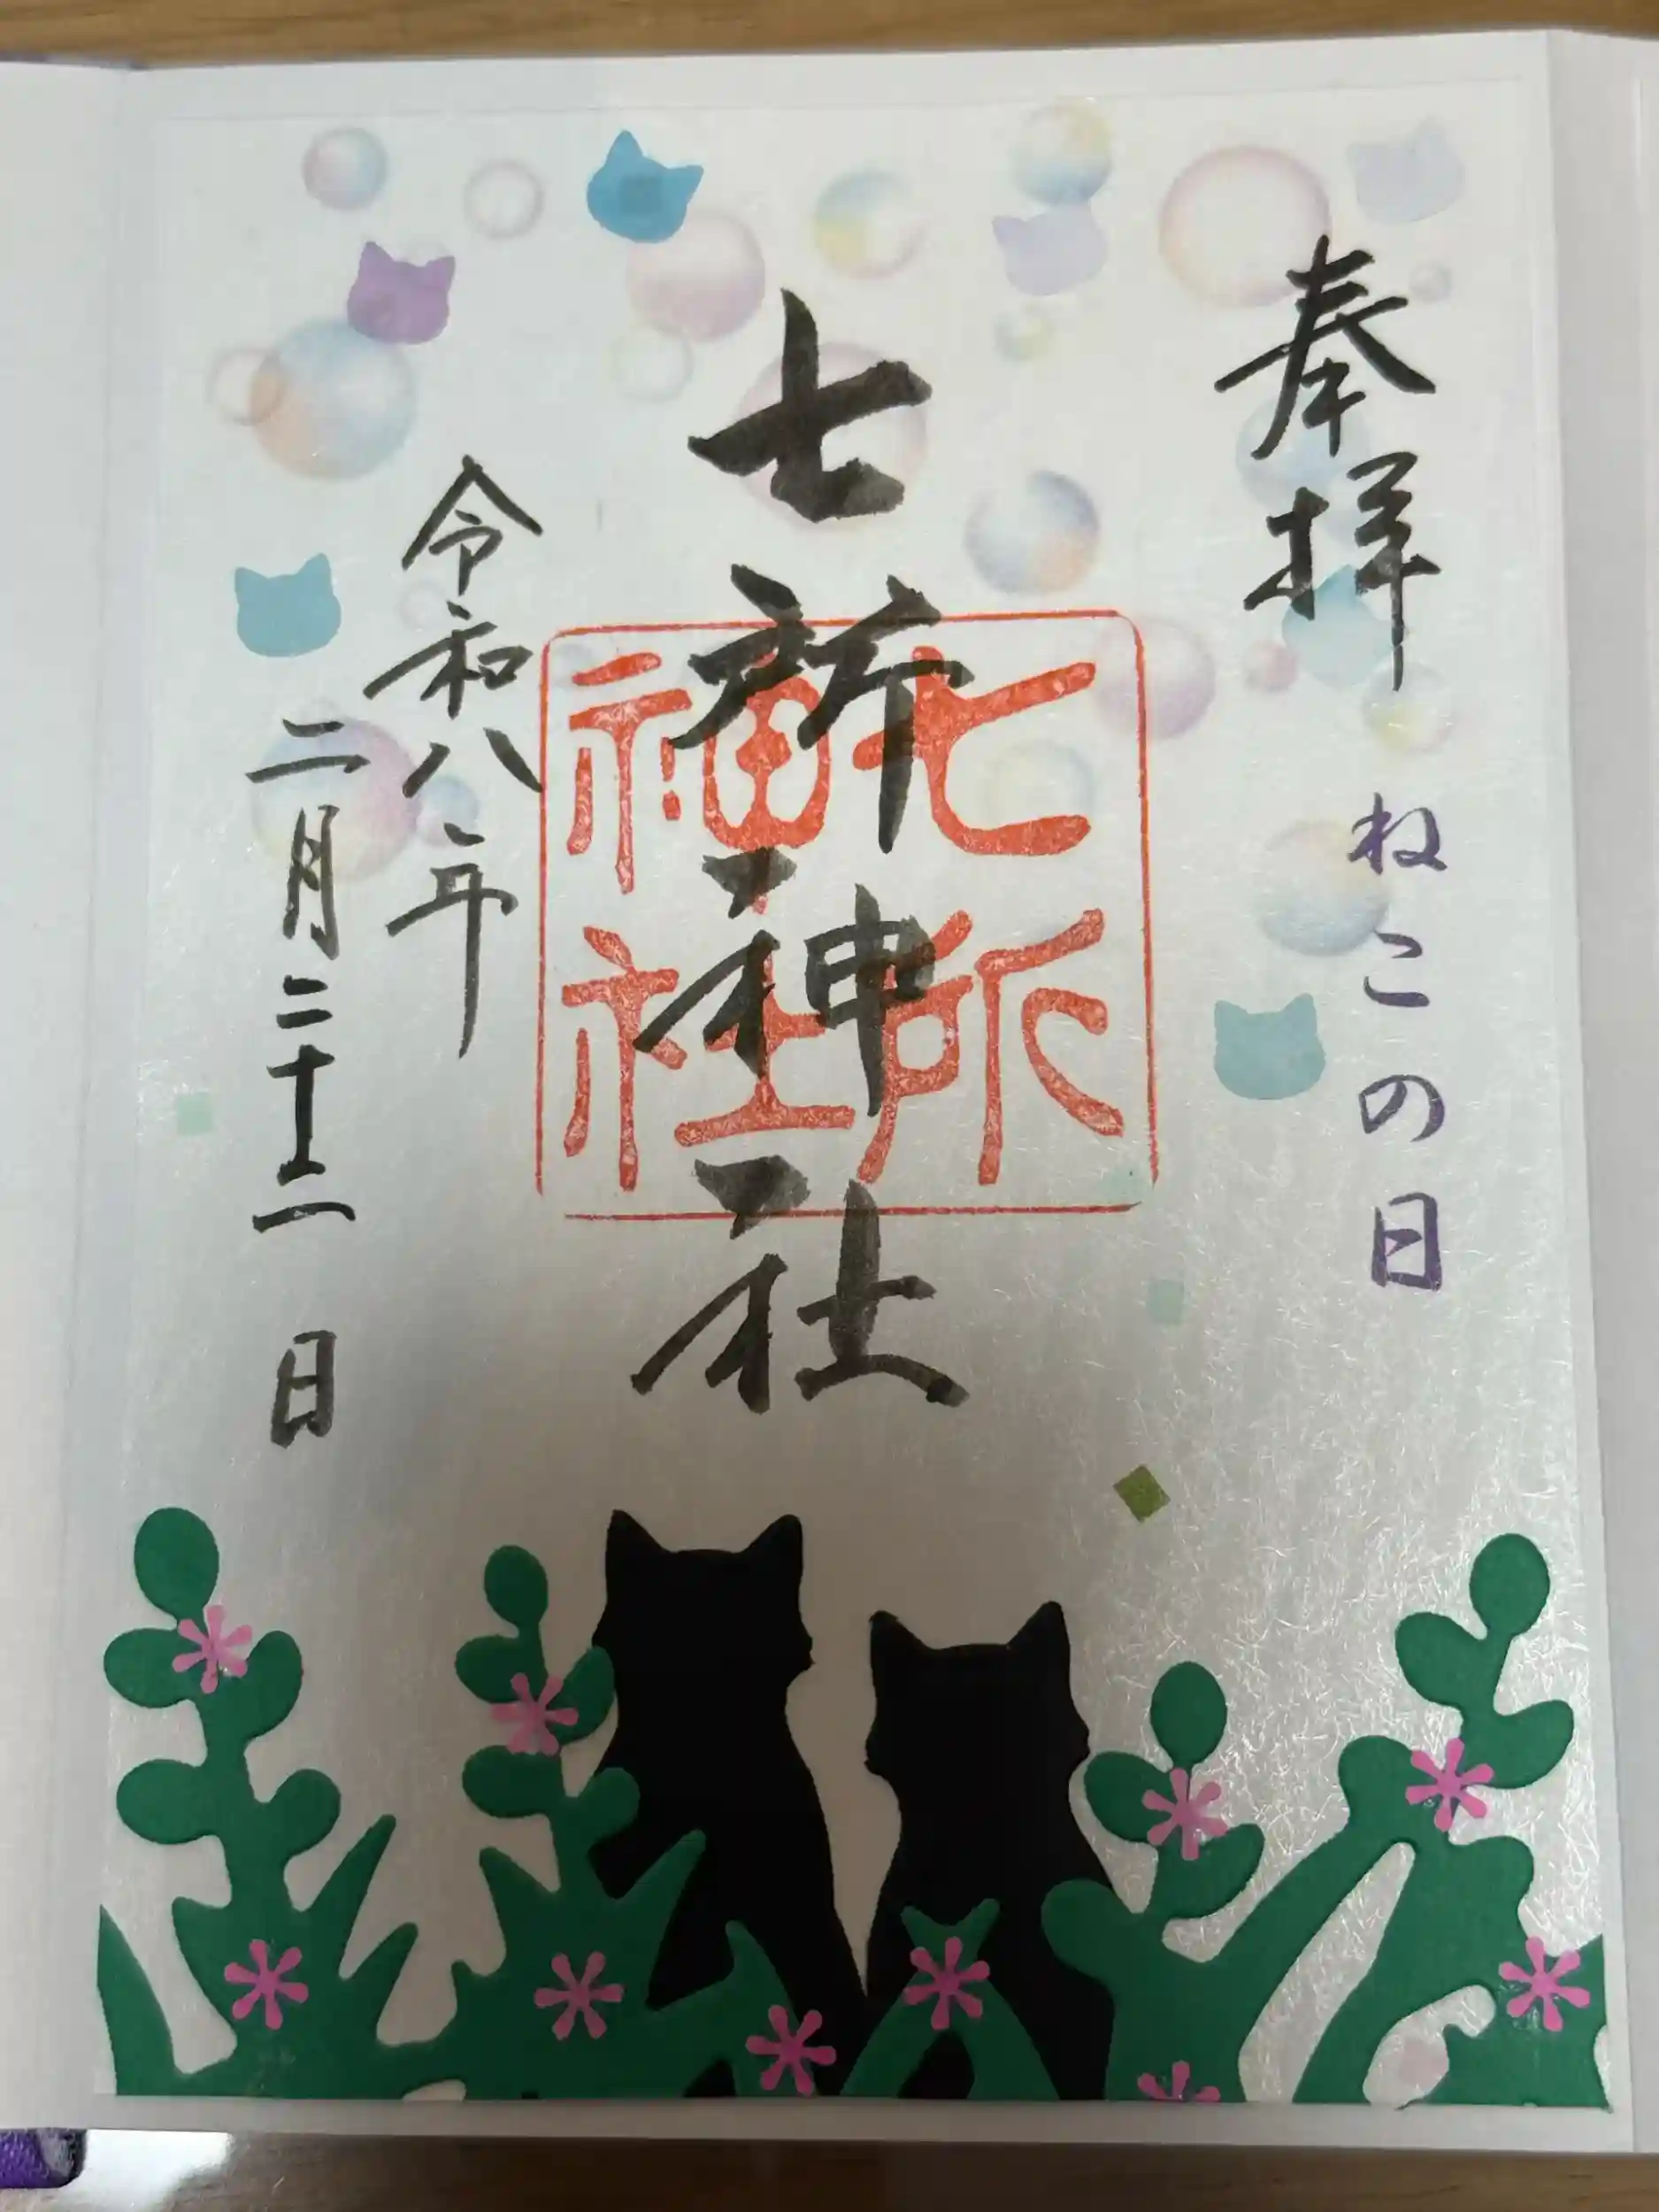 奉拝
ねこの日
七所神社
七所
神社
令和八年
二月二十二日